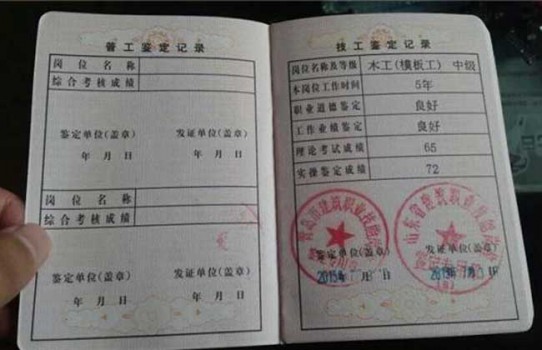 普工鉴定记录
岗位名称
综合考核成绩
鉴定单位(盖章) 发证单位(盖章)
年 月 日 年 月 日
岗位名称
综合考核成绩
鉴定单位(盖章) 发证单位(盖章)
年 月 日 年 月 日
技工鉴定记录
岗位名称及等级 木工(模板工) 中级
本岗位工作时间 5年
职业道德鉴定 良好
工作业绩鉴定 良好
理论考试成绩 65
实操鉴定成绩 72
鉴定单位(盖章) 发证单位(盖章)
2015年 月 日 2015年 月 日